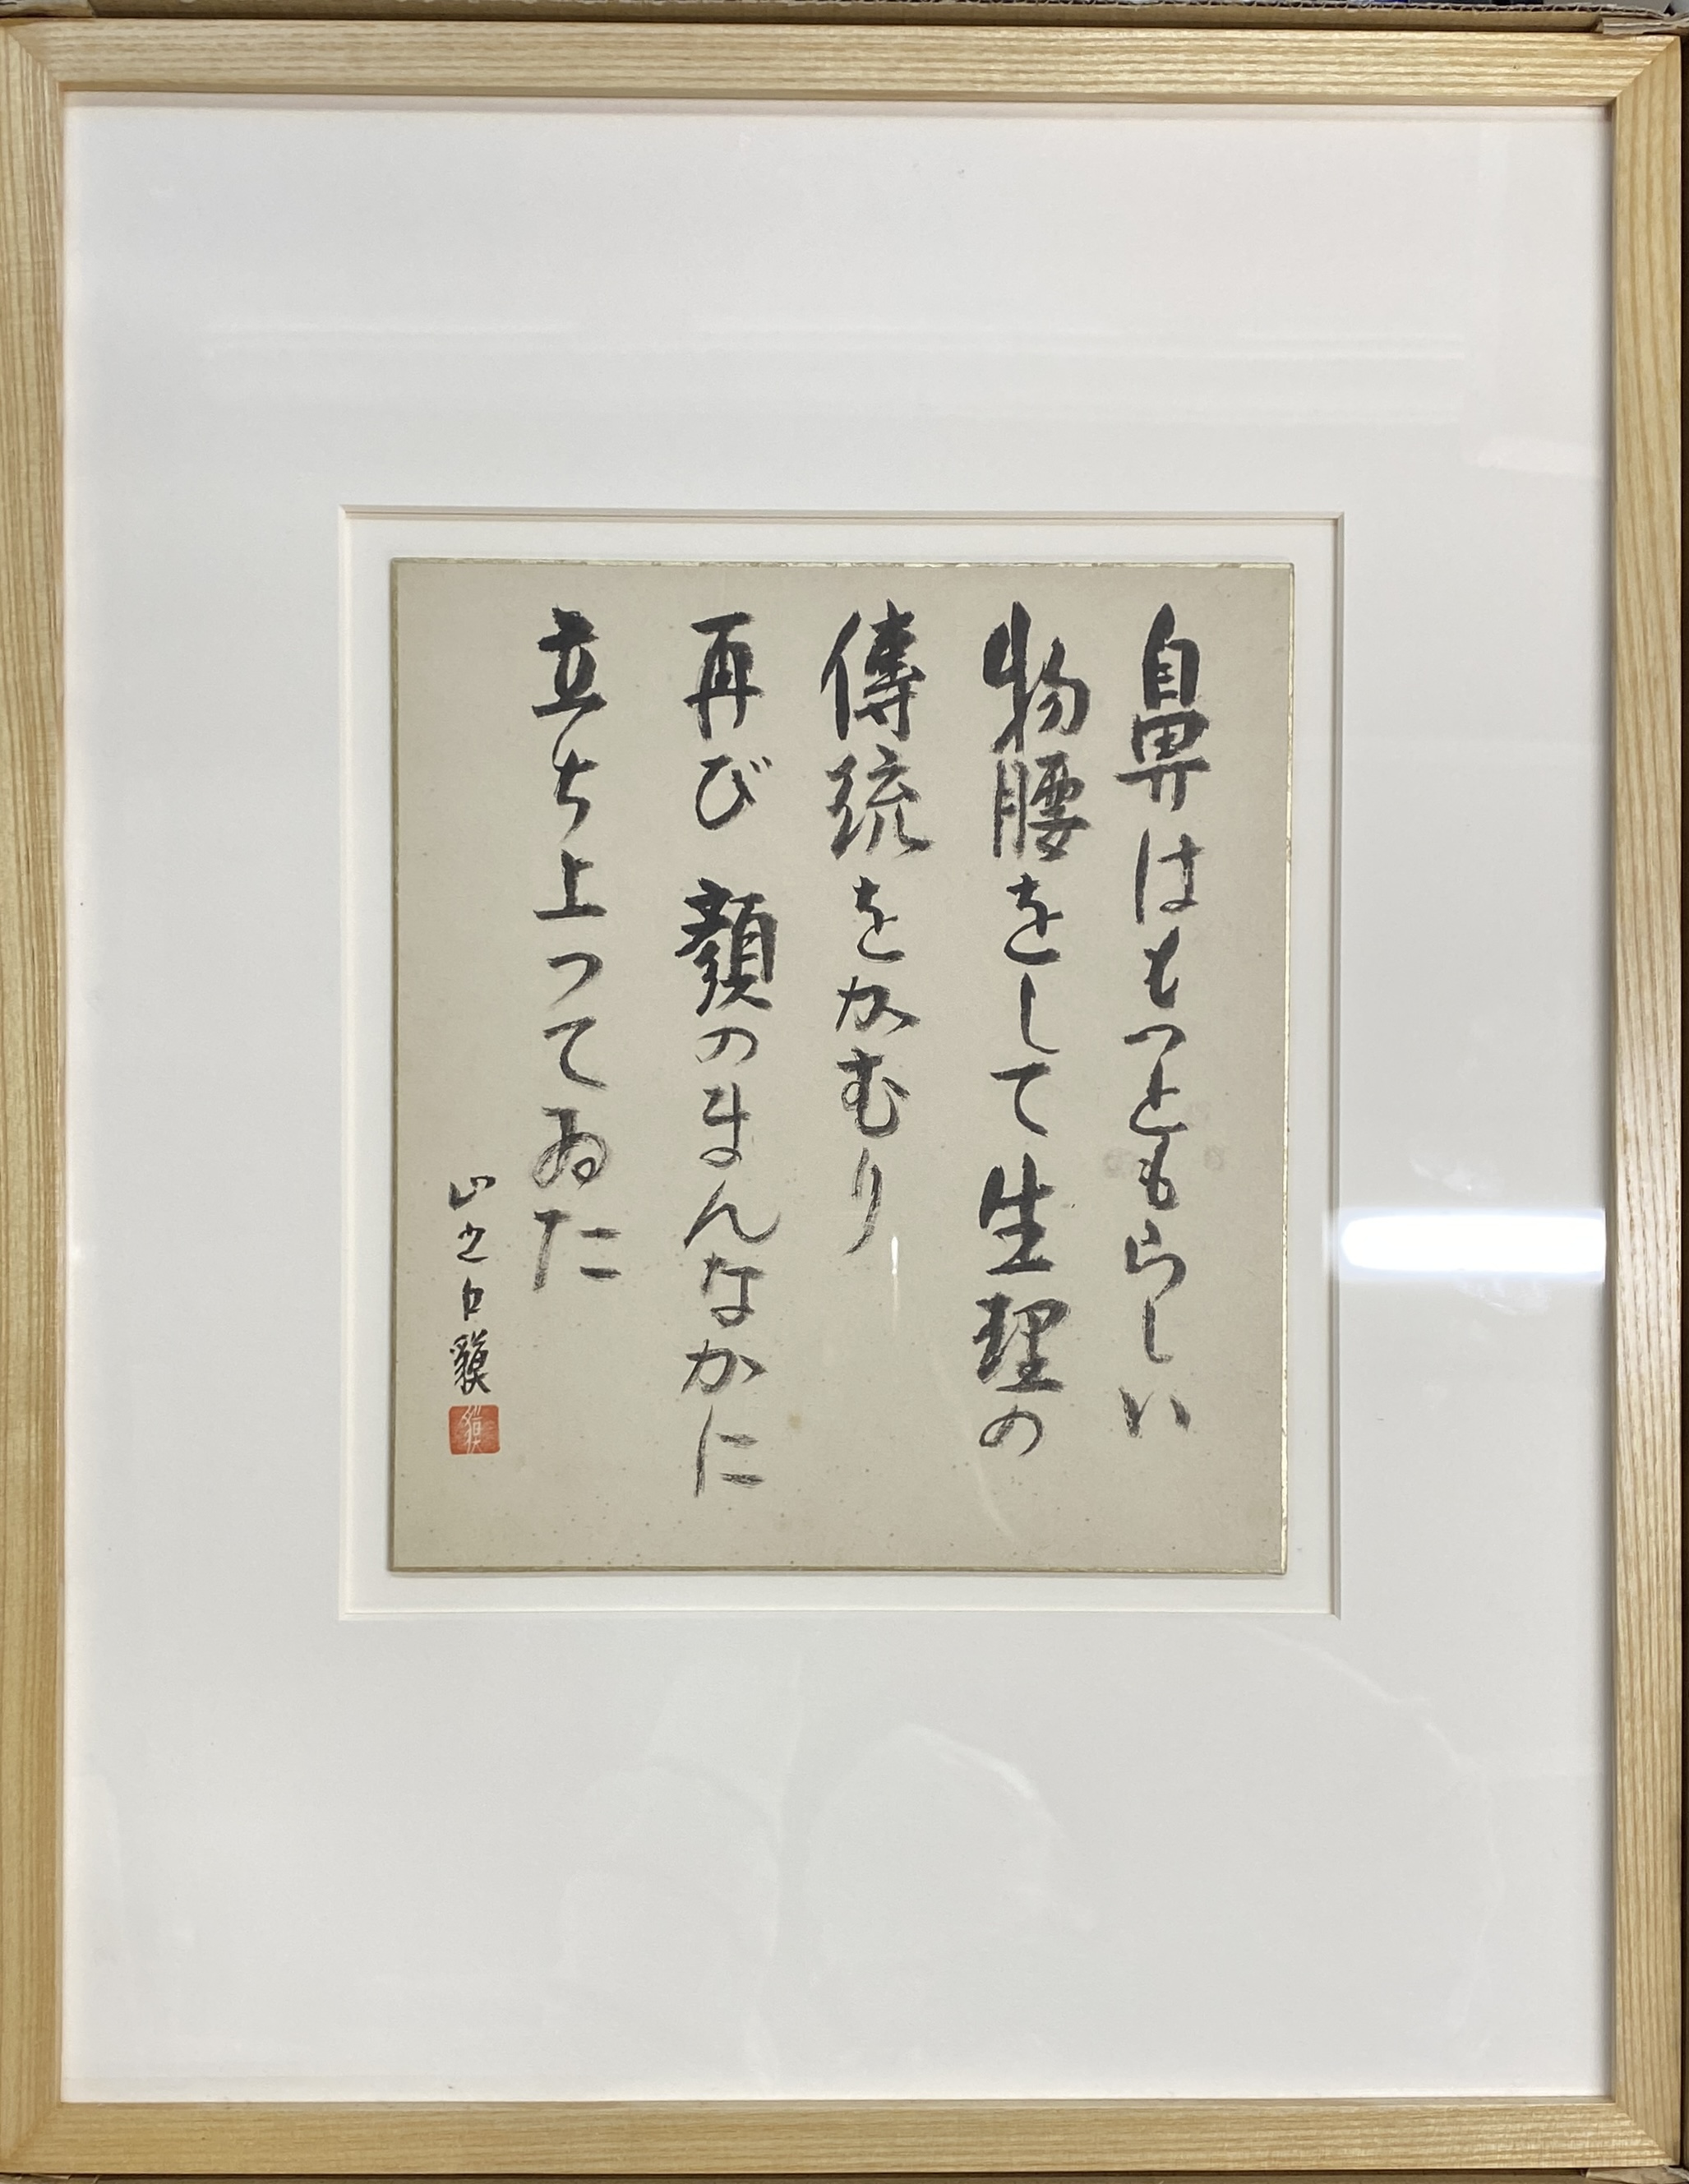 鼻はもつともらしい
物腰をして生理の
傳統をかむり
再び顔のまんなかに
立ち上つてゐた
山之口貘
貘